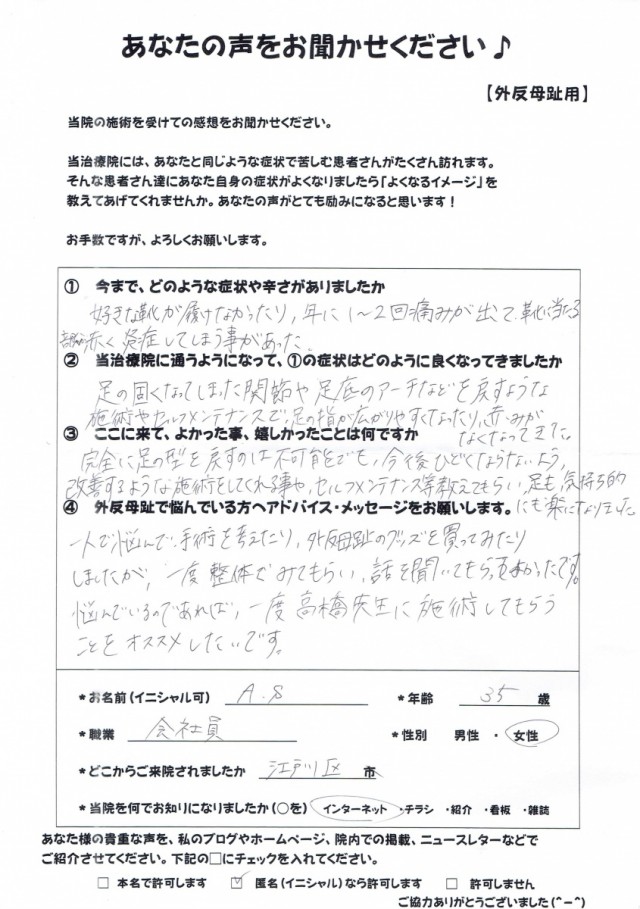 あなたの声をお聞かせください♪
【外反母趾用】
当院の施術を受けての感想をお聞かせください。
当治療院には、あなたと同じような症状で苦しむ患者さんがたくさん訪れます。
そんな患者さん達にあなた自身の症状がよくなりましたら「よくなるイメージ」を
教えてあげてくれませんか。あなたの声がとても励みになると思います！
お手数ですが、よろしくお願いします。
① 今まで、どのような症状や辛さがありましたか
好きな靴が履けなかったり，年に1～2回痛みが出て、靴に当たる
部分が赤く炎症してしまう事があった。
② 当治療院に通うようになって、①の症状はどのように良くなってきましたか
足の固くなってしまった関節や足底のアーチなどを戻すような
施術やセルフメンテナンスで，足の指が広がりやすくなったり，赤みが
なくなってきた。
③ ここに来て、よかった事、嬉しかったことは何ですか
完全に足の型を戻すのは不可能でも，今後ひどくならないよう，
改善するような施術をしてくれる事や，セルフメンテナンス等教えてもらい，足も，気持ち的
にも楽になりました
④ 外反母趾で悩んでいる方へアドバイス・メッセージをお願いします。
一人で悩んで、手術を考えたり，外反母趾のグッズを買ってみたり
しましたが，一度整体でみてもらい，話を聞いてもらえ良かったです。
悩んでいるのであれば，一度高橋先生に施術してもらう
ことをオススメしたいです。
＊お名前（イニシャル可） A.S ＊年齢 35 歳
＊職業 会社員 ＊性別 男性 ・ 女性
＊どこからご来院されましたか 江戸川区 市
＊当院を何でお知りになりましたか（○を） インターネット ・チラシ ・紹介 ・看板 ・雑誌
あなた様の貴重な声を、私のブログやホームページ、院内での掲載、ニュースレターなどで
ご紹介させてください。下記の□にチェックを入れてください。
□ 本名で許可します ☑ 匿名（イニシャル）なら許可します □ 許可しません
ご協力ありがとうございました(^－^)